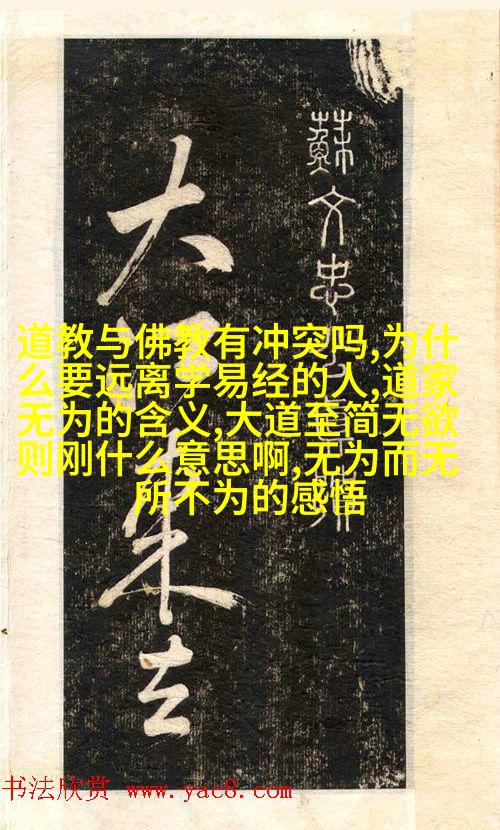 蘇文忠
大江東去
道教与佛教有冲突吗,为什
么要远离学易经的人,道家
无为的含义,大道至简无欲
则刚什么意思啊,无为而无
所不为的感悟
书法欣赏 www.yac8.com